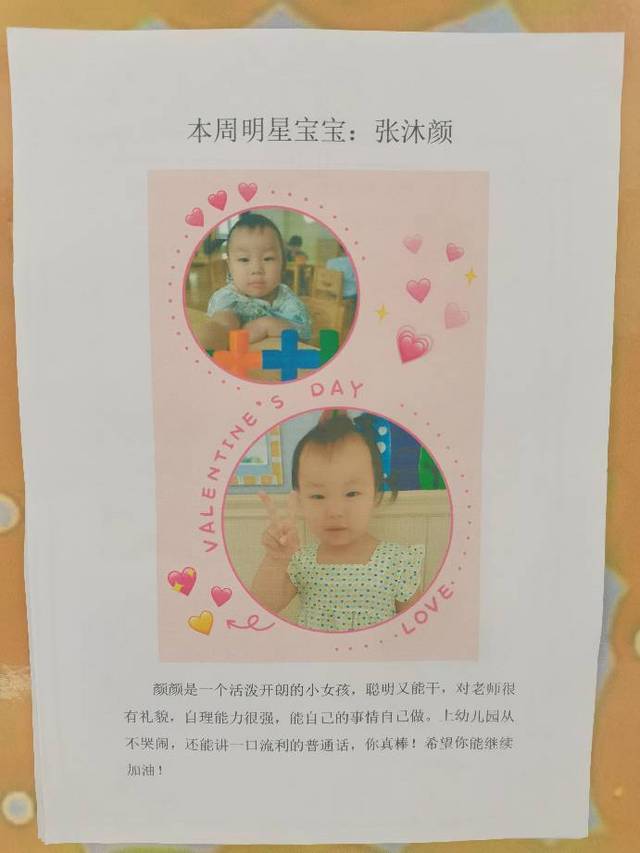 本周明星宝宝：张沐颜
VALENTINE'S DAY
LOVE
颜颜是一个活泼开朗的小女孩，聪明又能干，对老师很
有礼貌，自理能力很强，能自己的事情自己做。上幼儿园从
不哭闹，还能讲一口流利的普通话，你真棒！希望你能继续
加油！